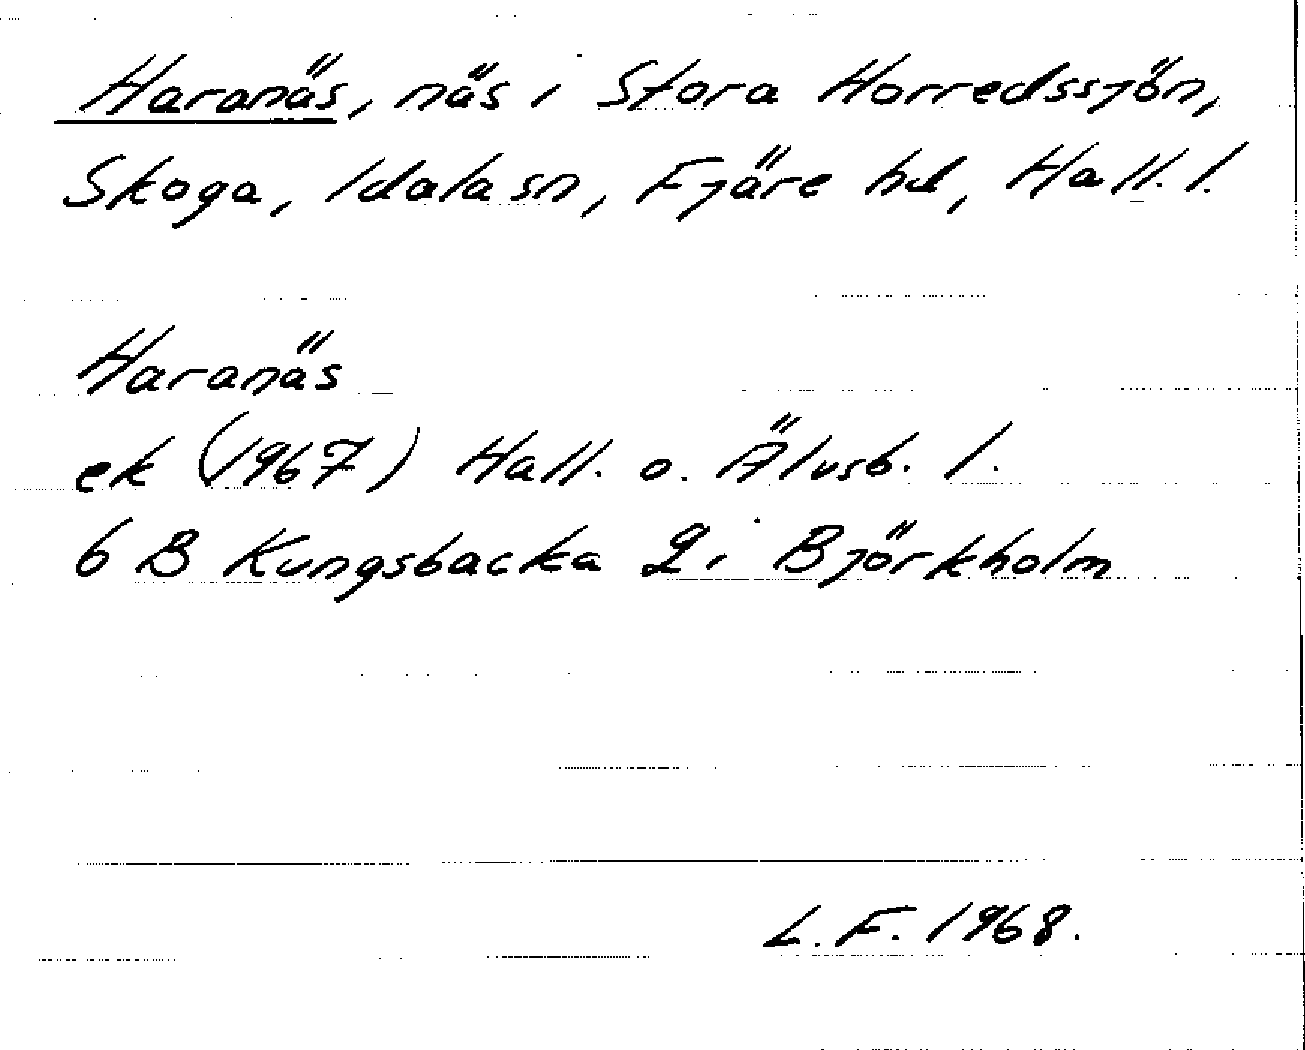 Haranäs, näs i Stora Horredssjön,
Skoga, Idala sn, Fjäre hd, Hall. l.
Haranäs
ek (1967) Hall. o. Älvsb. l.
6 B Kungsbacka 2 i Björkholm
L. F. 1968.